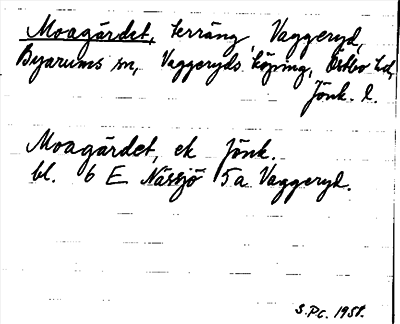 Moagärdet, terräng Vaggeryd,
Byarums sn, Vaggeryds köping, Östbo hd,
Jönk. l.
Moagärdet, ek Jönk.
bl. 6 E Nässjö 5a Vaggeryd.
S.Pc. 1958.